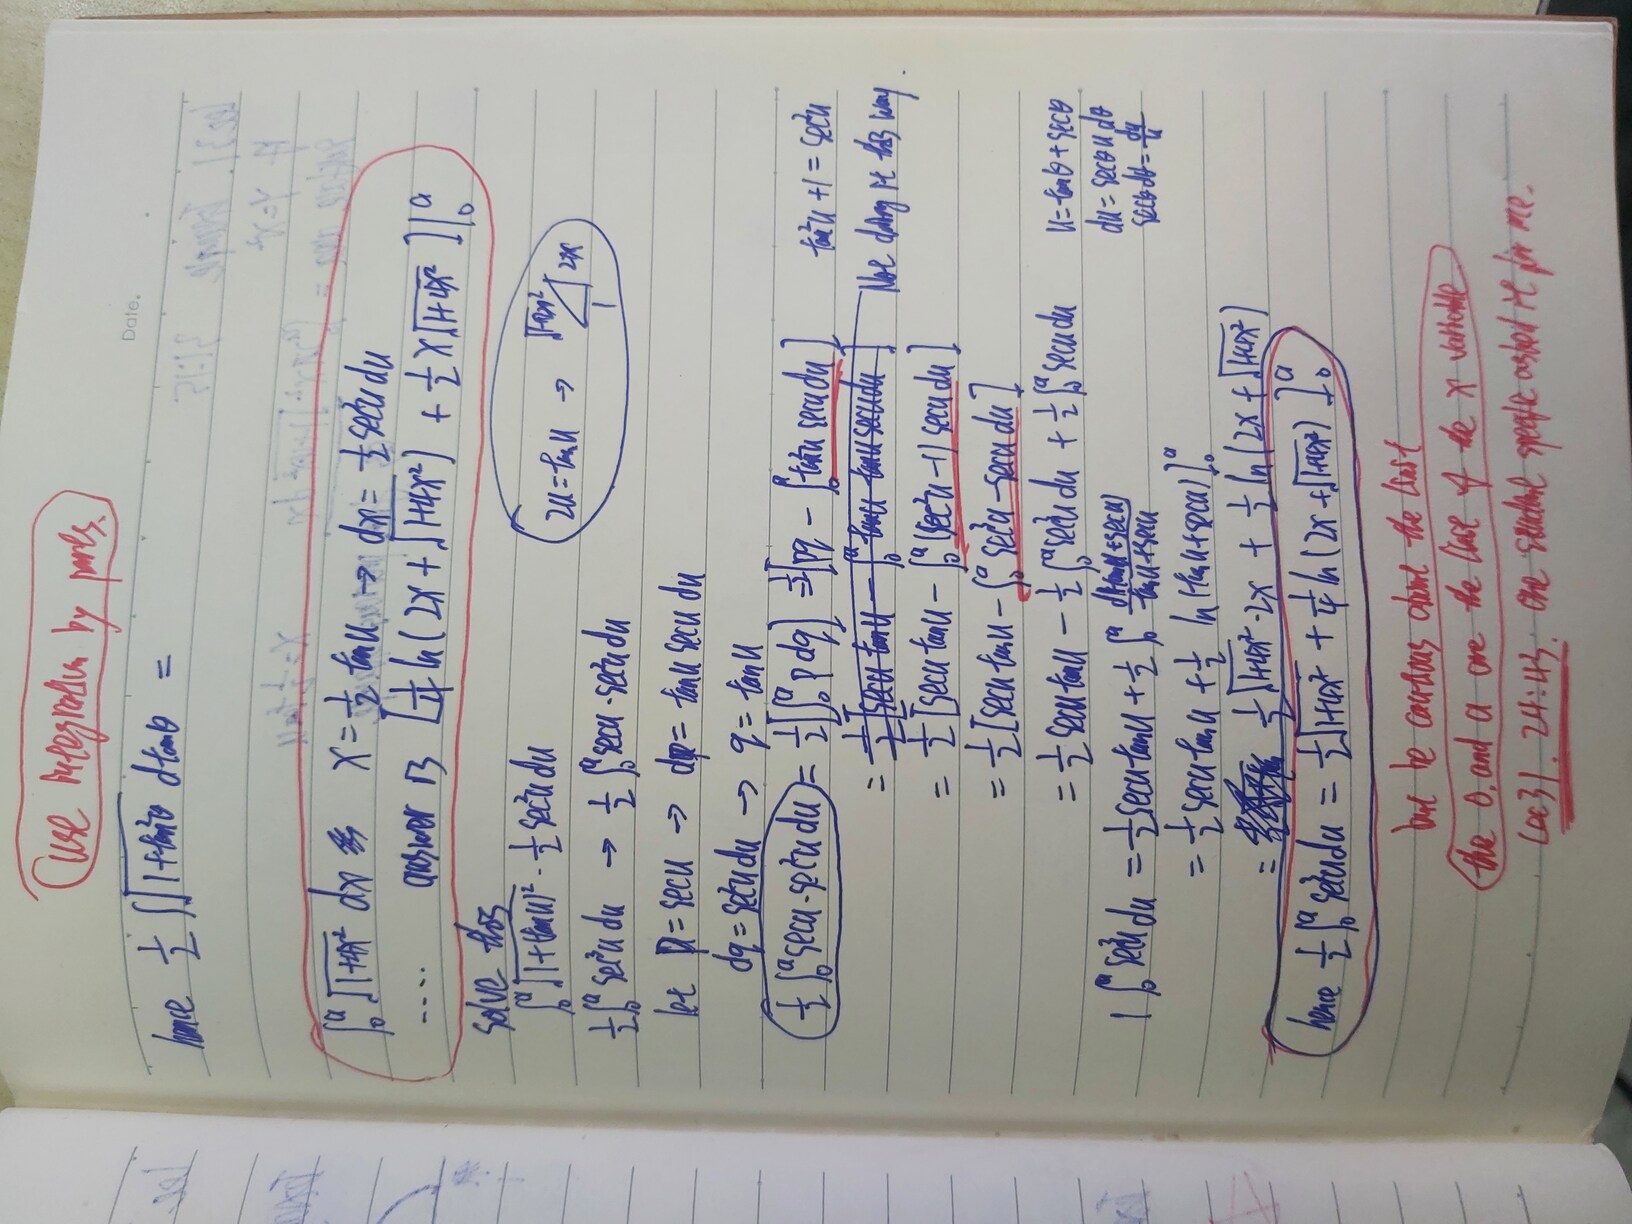 use integration by parts.
Date.
hence 1/2 ∫√(1+tan²θ) dtanθ =
∫₀ᵃ √(1+4x²) dx x = 1/2 tan u → dx = 1/2 sec²u du
.... answer is [1/4 ln(2x + √(1+4x²)) + 1/2 x√(1+4x²)]|₀ᵃ
solve this
∫₀ᵃ √(1+(tan u)²) · 1/2 sec²u du
2u = tan u → √(1+4x²) 2x 1
1/2 ∫₀ᵃ sec³u du → 1/2 ∫₀ᵃ sec u · sec²u du
let p = sec u → dp = tan u sec u du
dq = sec²u du → q = tan u
1/2 ∫₀ᵃ sec u · sec²u du = 1/2 [∫₀ᵃ p dq] = 1/2 [pq − ∫₀ᵃ tan²u sec u du] tan²u + 1 = sec²u
= 1/2 [sec u tan u − ∫₀ᵃ tan u · tan u sec u du] Not doing it this way.
= 1/2 [sec u tan u − ∫₀ᵃ (sec²u − 1) sec u du]
= 1/2 [sec u tan u − ∫₀ᵃ sec³u − sec u du]
= 1/2 sec u tan u − 1/2 ∫₀ᵃ sec³u du + 1/2 ∫₀ᵃ sec u du
u = tanθ + secθ
du = secθ u dθ
secθ dθ = du/u
1 ∫₀ᵃ sec³u du = 1/2 sec u tan u + 1/2 ∫₀ᵃ d(tan u + sec u)/(tan u + sec u)
= 1/2 sec u tan u + 1/2 ln(tan u + sec u)]₀ᵃ
= 1/2 √(1+4x²) · 2x + 1/2 ln(2x + √(1+4x²))
hence 1/2 ∫₀ᵃ sec³u du = 1/2 √(1+4x²) + 1/4 ln(2x + √(1+4x²))]₀ᵃ
but be cautious about the limit
the 0, and a are the limit of the x variable
Lec31. 24:43. one student specific asked it for me.